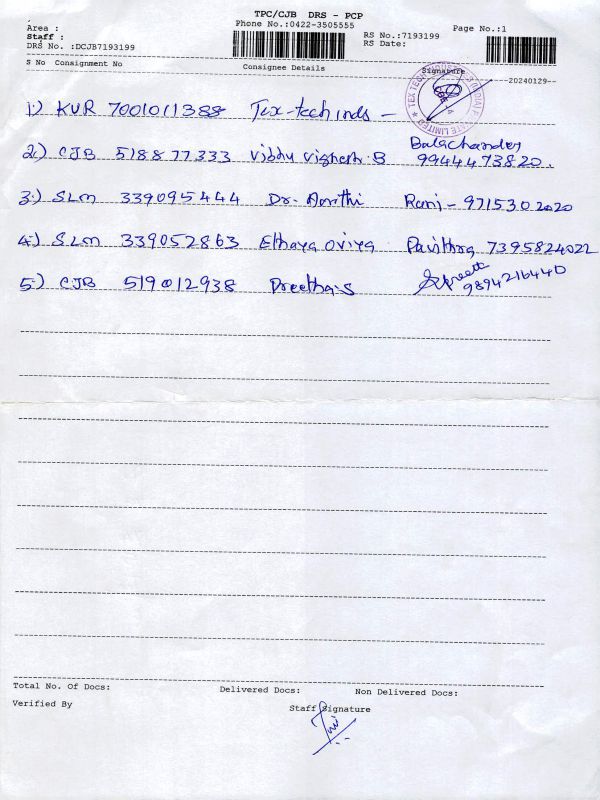 TPC/CJB DRS - PCP
Phone No.:0422-3505555
Page No.:1
Area :
Staff :
DRS No. :DCJB7193199
RS No.:7193199
RS Date:
S No Consignment No Consignee Details Signature
--20240129--
1) KUR 7001011388 Tex-tech inds -
2) CJB 518877333 Vibhu Vighesh. B Balachander 9944473820.
3) SLM 339095444 Dr. Aarthi Rani - 9715302020
4) SLM 339052863 Ethaya Oviya Pavithra 7395824022
5) CJB 519012938 Preetha.s Spreetha 9894216440
Total No. Of Docs: Delivered Docs: Non Delivered Docs:
Verified By Staff Signature